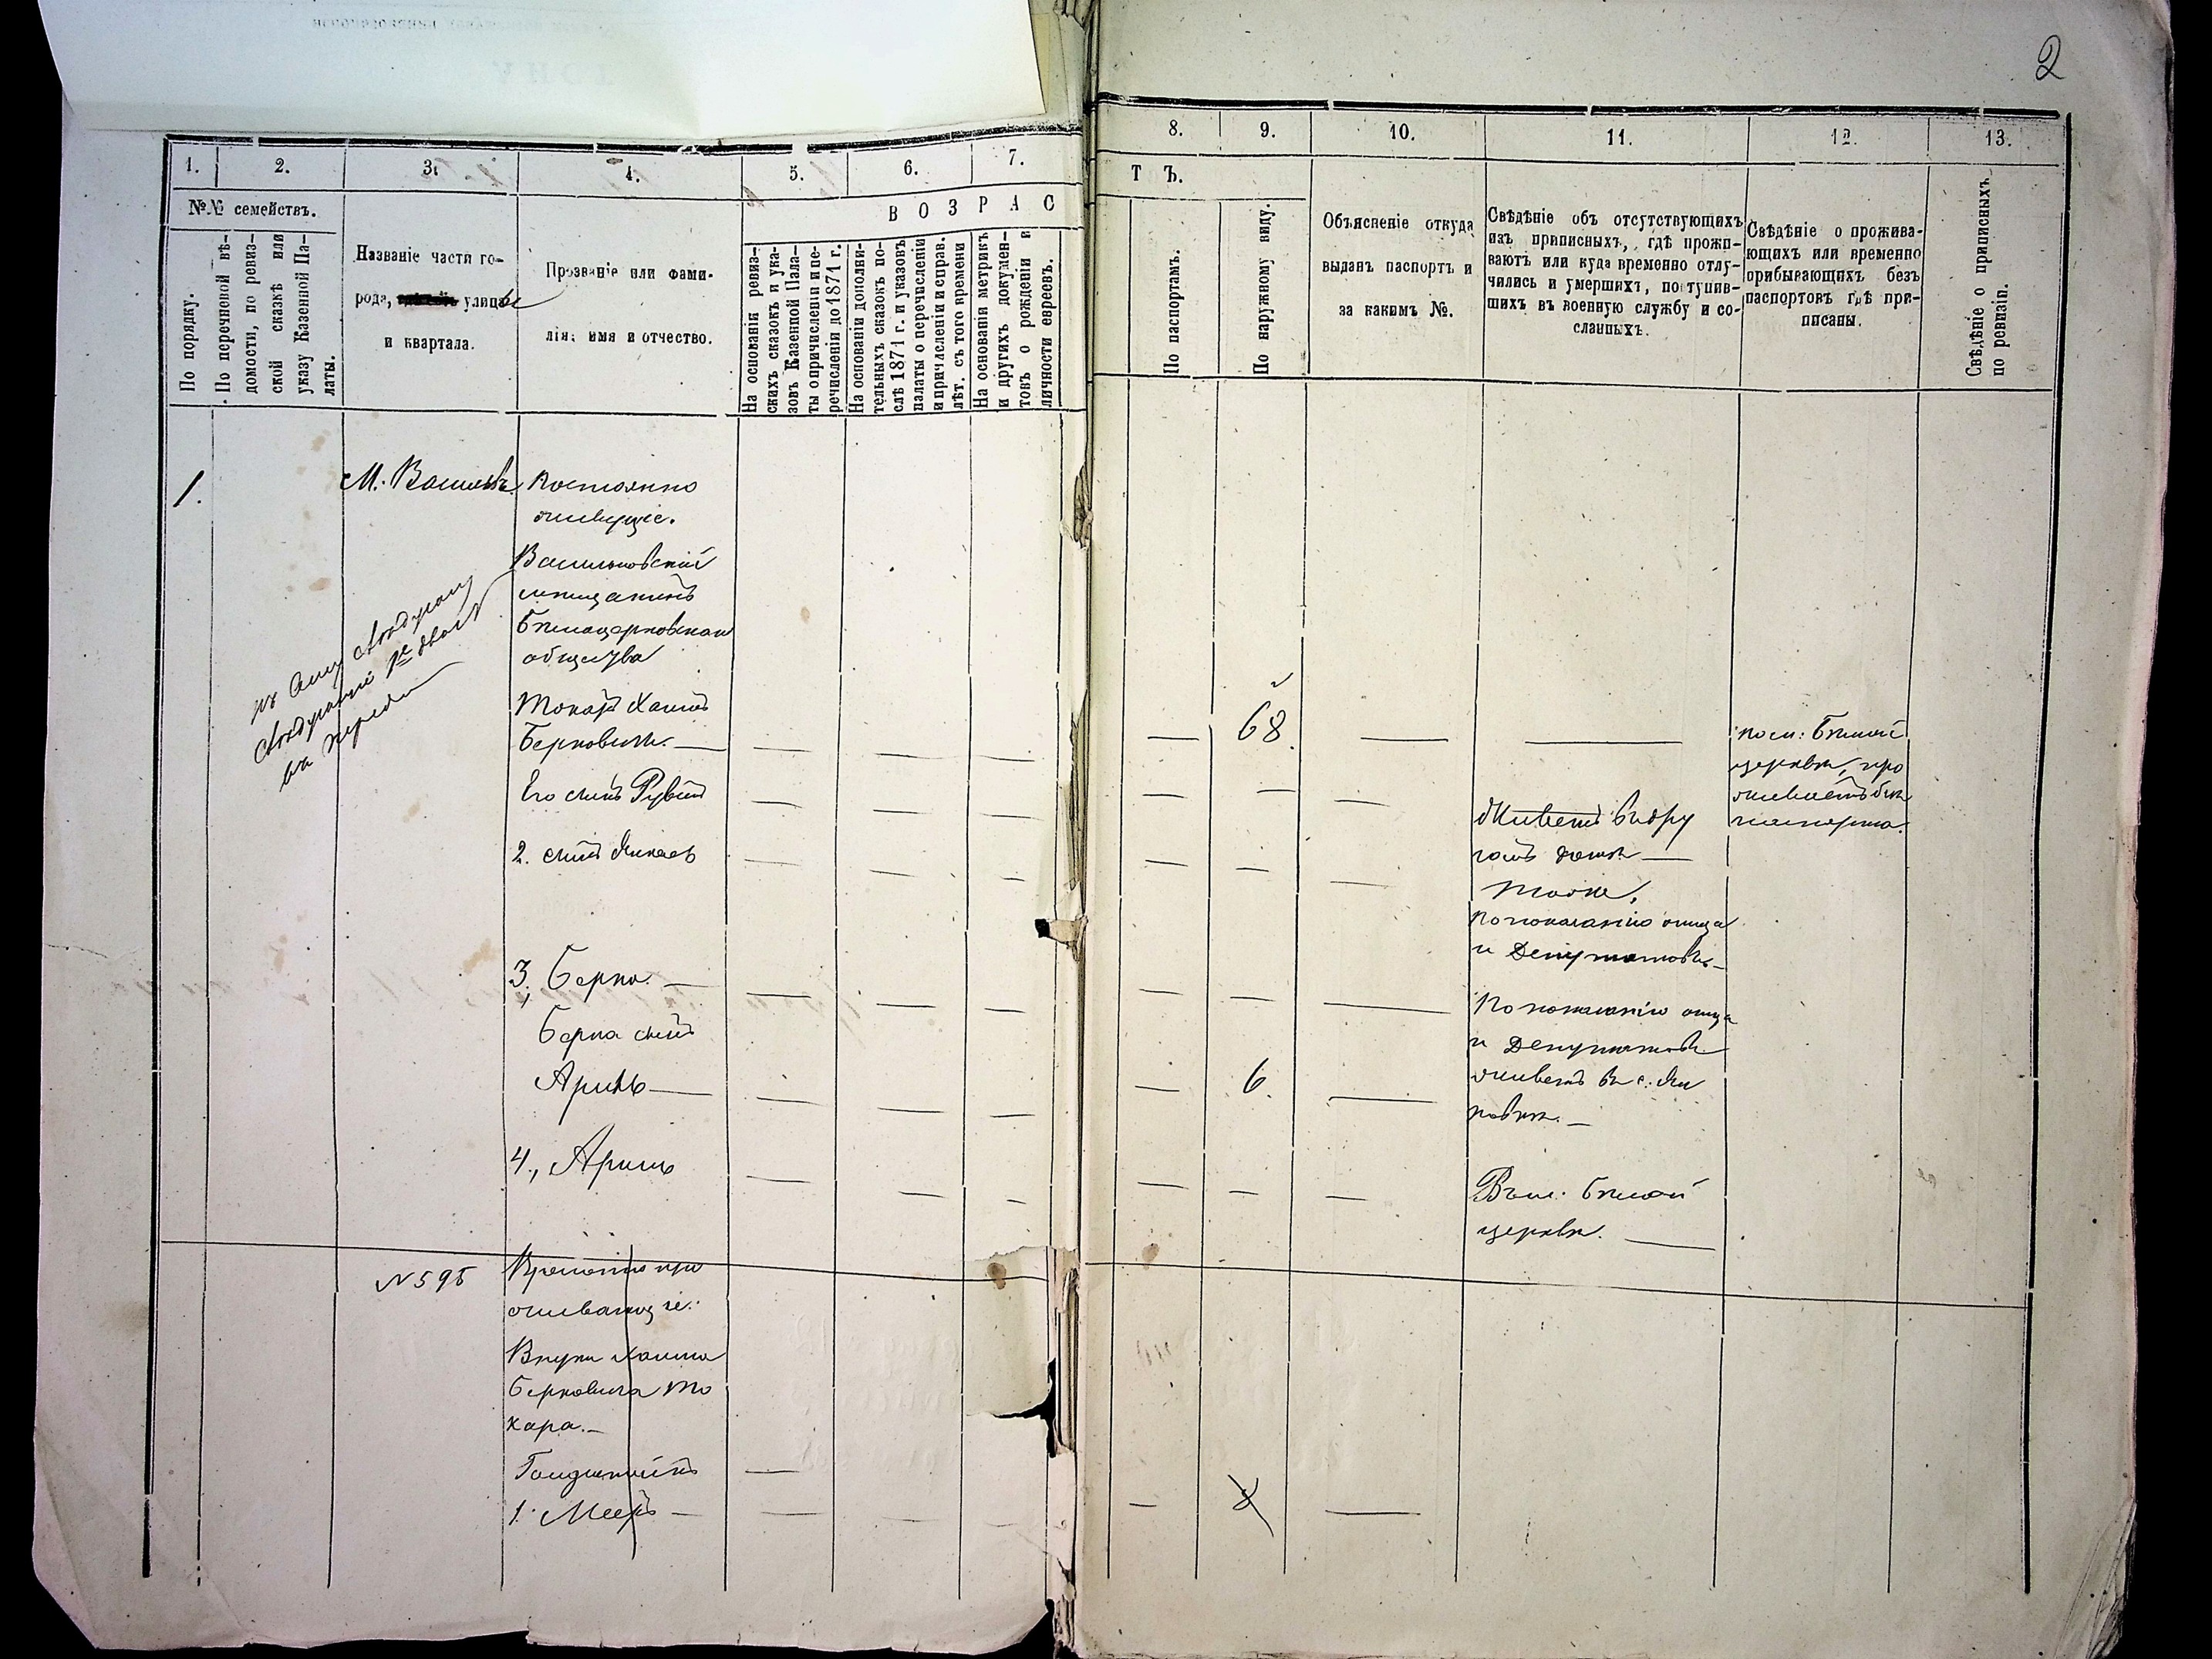 2
1.
2.
3.
4.
5.
6.
7.
8.
9.
10.
11.
12.
13.
№№ семействъ.
В О З Р А С
Т Ъ.
По порядку.
По перечневой вѣ-
домости, по ревиз-
ской сказкѣ или
указу Казенной Па-
латы.
Названіе части го-
рода, улицы
и квартала.
Прозваніе или фами-
лія, имя и отчество.
На основаніи ревиз-
скихъ сказокъ и ука-
зовъ Казенной Пала-
ты о причисленіи и пе-
речисленіи до 1871 г.
На основаніи дополни-
тельныхъ сказокъ по-
слѣ 1871 г. и указовъ
палаты о перечисленіи
и причисленіи и справ.
лѣт. съ того времени
На основаніи метрикъ
и другихъ докумен-
товъ о рожденіи и
личности евреевъ.
По паспортамъ.
По наружному виду.
Объясненіе откуда
выданъ паспортъ и
за какимъ №.
Свѣдѣніе объ отсутствующихъ
изъ приписныхъ, гдѣ прожи-
ваютъ или куда временно отлу-
чились и умершихъ, поступив-
шихъ въ военную службу и со-
сланныхъ.
Свѣдѣніе о прожива-
ющихъ или временно
прибывающихъ безъ
паспортовъ гдѣ при-
писаны.
Свѣдѣніе о приписныхъ
по ревизіи.
1.
М.
Постоянно
живущіе.
Васильковскій
мѣщанинъ
Бѣлоцерковскаго
общества
Токарь Хаимъ
Берковичъ. —
68
Бѣлой
церкви, про
живаетъ безъ
паспорта.
Его сынъ Рувинъ
Живетъ въ дру
гомъ домѣ —
2. сынъ
Тоже,
По показанію отца
и Депутатовъ. —
3, Берко. —
По показанію отца
и Депутатовъ
Берка сынъ
Аринь —
6.
живетъ въ с.
4., Аринь
Бѣлой
церкви. —
№ 595
Временно про
живающіе:
Внуки Хаима
Берковича То
каря. —
1. Мееръ —